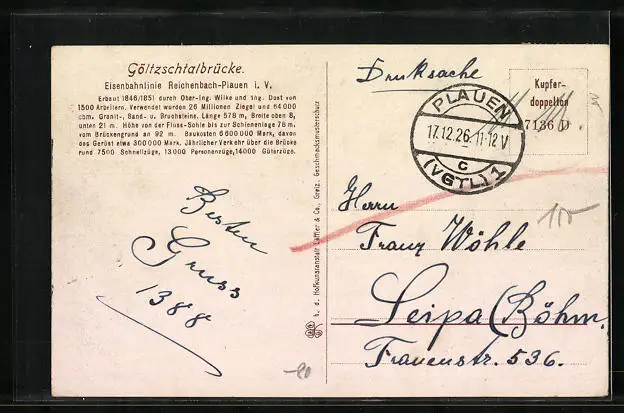 Göltzschtalbrücke.
Eisenbahnlinie Reichenbach-Plauen i. V.
Erbaut 1846/1851 durch Ober-Ing. Wilke und Ing. Dost von
1500 Arbeitern. Verwendet wurden 26 Millionen Ziegel und 64000
cbm. Granit-, Sand- u. Bruchsteine. Länge 578 m, Breite oben 8,
unten 21 m. Höhe von der Fluss-Sohle bis zur Schienenlage 78 m,
vom Brückengrund an 92 m. Baukosten 6600000 Mark, davon
das Gerüst etwa 300000 Mark. Jährlicher Verkehr über die Brücke
rund 7500 Schnellzüge, 13000 Personenzüge, 14000 Güterzüge.
Besten
Gruss
1388
h. d. Hofkunstanstalt Löffler & Co., Greiz. Geschmacksmusterschutz
Drucksache
Kupfer-
doppelton
7136 D
PLAUEN
17.12.26.11-12V
c
(VGTL) 1
Herrn
Franz Wöhle
Leipa (Böhm.
Frauenstr. 536.
100